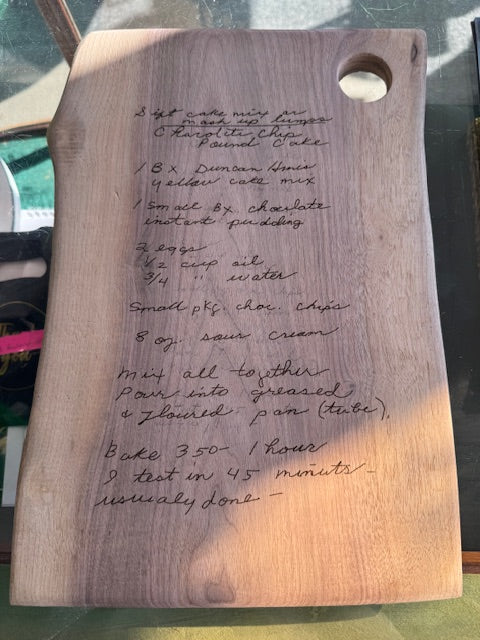 Sift cake mix or
mash up lumps
Charolite Chip
Pound Cake
1 Bx Duncan Hines
yellow cake mix
1 small Bx. choclate
instant pudding
2 eggs
1/2 cup oil
3/4 " water
Small pkg. choc. chips
8 oz. sour cream
Mix all together
Pour into greased
& floured - pan (tube).
Bake 350- 1 hour
I test in 45 minuts -
usualy done -